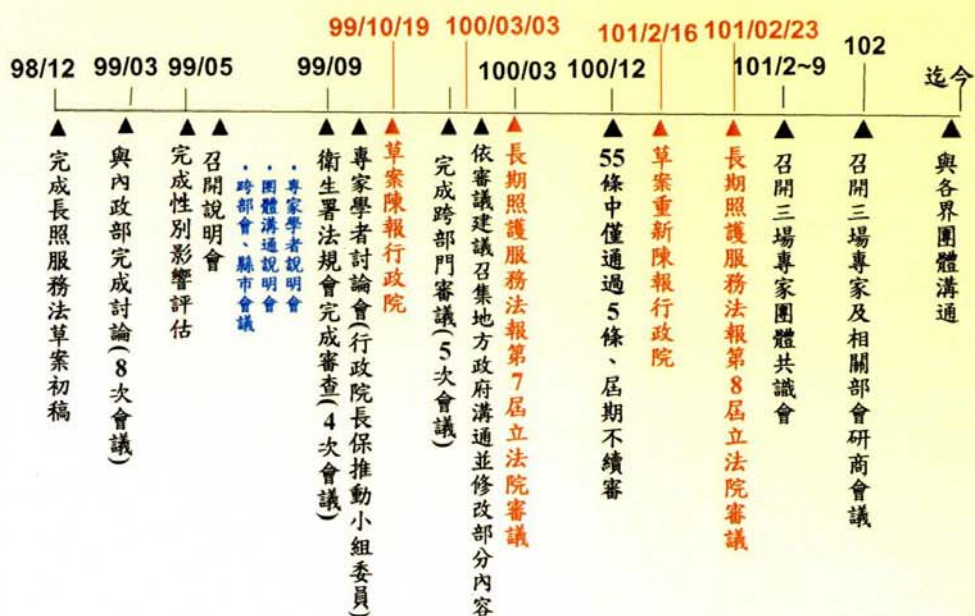 99/10/19
100/03/03
101/2/16
101/02/23
98/12
99/03
99/05
99/09
100/03
100/12
101/2~9
102
迄今
完成長照服務法草案初稿
與內政部完成討論(8次會議)
完成性別影響評估
召開說明會
・跨部會、縣市會議
・團體溝通說明會
・專家學者說明會
衛生署法規會完成審查(4次會議)
專家學者討論會(行政院長保推動小組委員)
草案陳報行政院
完成跨部門審議(5次會議)
依審議建議召集地方政府溝通並修改部分內容
長期照護服務法報第7屆立法院審議
55條中僅通過5條、屆期不續審
草案重新陳報行政院
長期照護服務法報第8屆立法院審議
召開三場專家團體共識會
召開三場專家及相關部會研商會議
與各界團體溝通